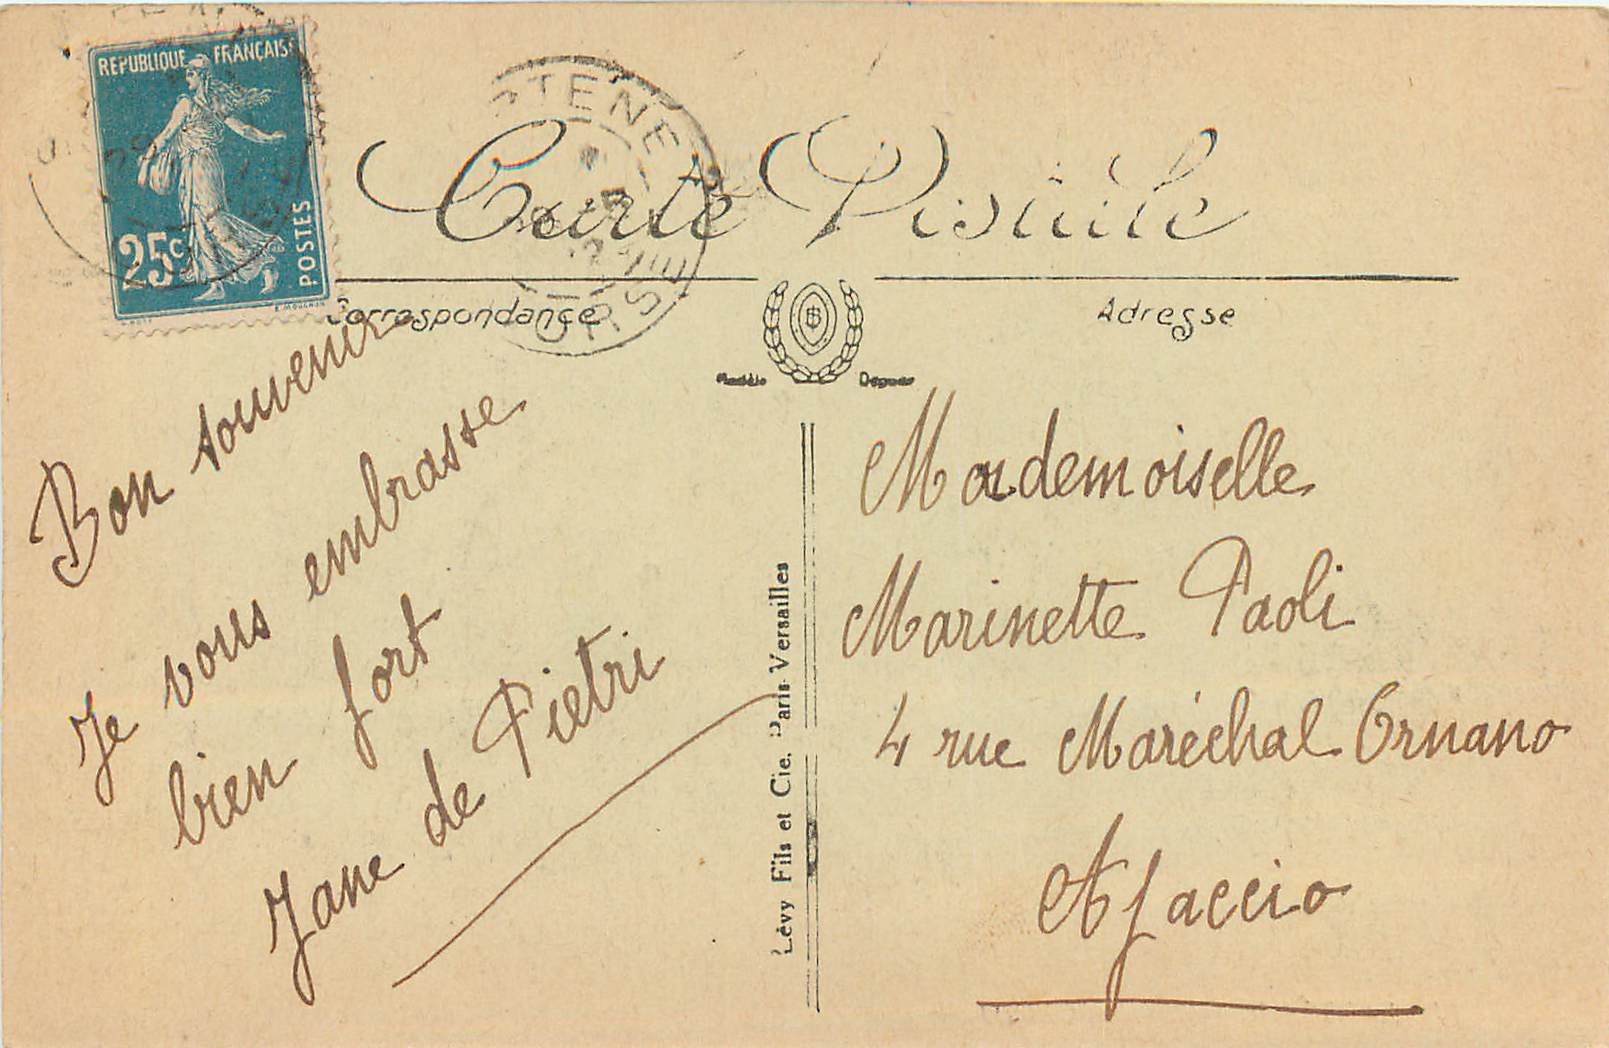 REPUBLIQUE FRANÇAISE
25c
POSTES
Carte Postale
Correspondance
Adresse
Bon souvenir
Je vous embrasse
bien fort
Jane de Pietri
Lévy Fils et Cie. Paris-Versailles
Mademoiselle
Marinette Paoli
4 rue Maréchal Ornano
Ajaccio